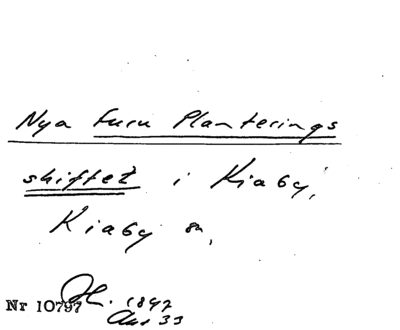 Nya Furu Planterings
skiftet i Kiaby,
Kiaby sn,
1847
Nr 10797
Akt 33